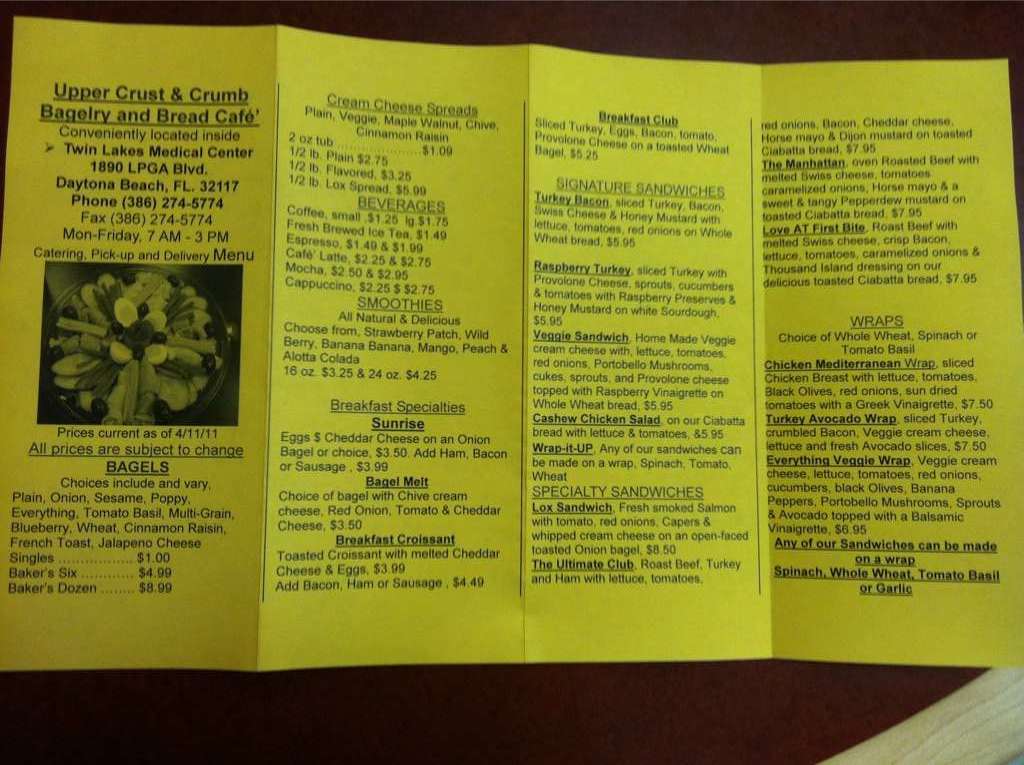 Upper Crust & Crumb
Bagelry and Bread Café'
Conveniently located inside
➤ Twin Lakes Medical Center
1890 LPGA Blvd.
Daytona Beach, FL. 32117
Phone (386) 274-5774
Fax (386) 274-5774
Mon-Friday, 7 AM - 3 PM
Catering, Pick-up and Delivery Menu
Prices current as of 4/11/11
All prices are subject to change
BAGELS
Choices include and vary,
Plain, Onion, Sesame, Poppy,
Everything, Tomato Basil, Multi-Grain,
Blueberry, Wheat, Cinnamon Raisin,
French Toast, Jalapeno Cheese
Singles .................. $1.00
Baker's Six ............ $4.99
Baker's Dozen ........ $8.99
Cream Cheese Spreads
Plain, Veggie, Maple Walnut, Chive,
Cinnamon Raisin
2 oz tub ..................... $1.09
1/2 lb. Plain $2.75
1/2 lb. Flavored, $3.25
1/2 lb. Lox Spread, $5.99
BEVERAGES
Coffee, small .$1.25 lg.$1.75
Fresh Brewed Ice Tea, $1.49
Espresso, $1.49 & $1.99
Café' Latte, $2.25 & $2.75
Mocha, $2.50 & $2.95
Cappuccino, $2.25 $ $2.75
SMOOTHIES
All Natural & Delicious
Choose from, Strawberry Patch, Wild
Berry, Banana Banana, Mango, Peach &
Alotta Colada
16 oz. $3.25 & 24 oz. $4.25
Breakfast Specialties
Sunrise
Eggs $ Cheddar Cheese on an Onion
Bagel or choice, $3.50. Add Ham, Bacon
or Sausage , $3.99
Bagel Melt
Choice of bagel with Chive cream
cheese, Red Onion, Tomato & Cheddar
Cheese, $3.50
Breakfast Croissant
Toasted Croissant with melted Cheddar
Cheese & Eggs, $3.99
Add Bacon, Ham or Sausage , $4.49
Breakfast Club
Sliced Turkey, Eggs, Bacon, tomato,
Provolone Cheese on a toasted Wheat
Bagel, $5.25
SIGNATURE SANDWICHES
Turkey Bacon, sliced Turkey, Bacon,
Swiss Cheese & Honey Mustard with
lettuce, tomatoes, red onions on Whole
Wheat bread, $5.95
Raspberry Turkey, sliced Turkey with
Provolone Cheese, sprouts, cucumbers
& tomatoes with Raspberry Preserves &
Honey Mustard on white Sourdough,
$5.95
Veggie Sandwich, Home Made Veggie
cream cheese with, lettuce, tomatoes,
red onions, Portobello Mushrooms,
cukes, sprouts, and Provolone cheese
topped with Raspberry Vinaigrette on
Whole Wheat bread, $5.95
Cashew Chicken Salad, on our Ciabatta
bread with lettuce & tomatoes, &5.95
Wrap-it-UP, Any of our sandwiches can
be made on a wrap, Spinach, Tomato,
Wheat
SPECIALTY SANDWICHES
Lox Sandwich, Fresh smoked Salmon
with tomato, red onions, Capers &
whipped cream cheese on an open-faced
toasted Onion bagel, $8.50
The Ultimate Club, Roast Beef, Turkey
and Ham with lettuce, tomatoes,
red onions, Bacon, Cheddar cheese,
Horse mayo & Dijon mustard on toasted
Ciabatta bread, $7.95
The Manhattan, oven Roasted Beef with
melted Swiss cheese, tomatoes
caramelized onions, Horse mayo & a
sweet & tangy Pepperdew mustard on
toasted Ciabatta bread, $7.95
Love AT First Bite, Roast Beef with
melted Swiss cheese, crisp Bacon,
lettuce, tomatoes, caramelized onions &
Thousand Island dressing on our
delicious toasted Ciabatta bread, $7.95
WRAPS
Choice of Whole Wheat, Spinach or
Tomato Basil
Chicken Mediterranean Wrap, sliced
Chicken Breast with lettuce, tomatoes,
Black Olives, red onions, sun dried
tomatoes with a Greek Vinaigrette, $7.50
Turkey Avocado Wrap, sliced Turkey,
crumbled Bacon, Veggie cream cheese,
lettuce and fresh Avocado slices, $7.50
Everything Veggie Wrap, Veggie cream
cheese, lettuce, tomatoes, red onions,
cucumbers, black Olives, Banana
Peppers, Portobello Mushrooms, Sprouts
& Avocado topped with a Balsamic
Vinaigrette, $6.95
Any of our Sandwiches can be made
on a wrap
Spinach, Whole Wheat, Tomato Basil
or Garlic